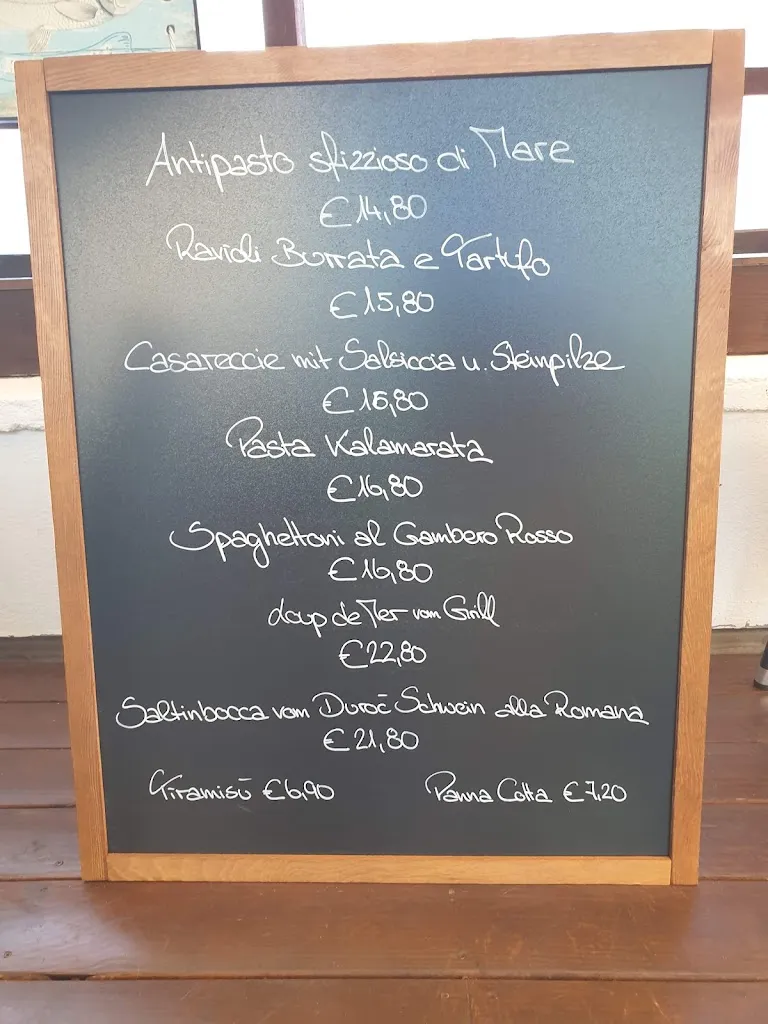 Antipasto sfizzioso di Mare
€14,80
Ravioli Burrata e Tartufo
€15,80
Casareccie mit Salsiccia u. Steinpilze
€15,80
Pasta Kalamarata
€16,80
Spaghettoni al Gambero Rosso
€16,80
Loup de Mer vom Grill
€22,80
Saltinbocca vom Duroc Schwein alla Romana
€21,80
Tiramisū €6,90 Panna Cotta €7,20